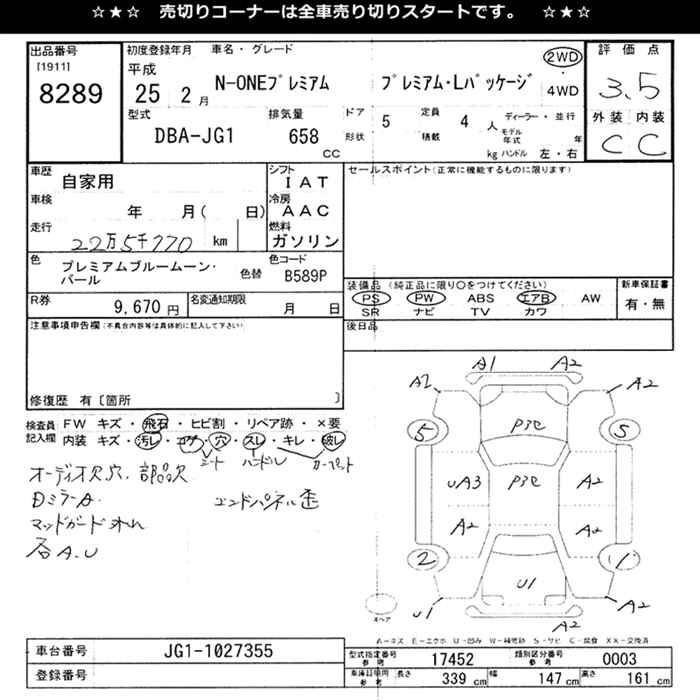 ☆★☆ 売切りコーナーは全車売り切りスタートです。 ☆★☆
出品番号 初度登録年月 車名・グレード 評価点
[1911] 平成 N-ONEプレミアム プレミアム・Lパッケージ 2WD 3.5
8289 25 2月 4WD
型式 排気量 ドア 5 定員 4人 ディーラー・並行 外装 内装
DBA-JG1 658 CC 形状 積載 kg モデル年式 年 C C
ハンドル 左・右
車歴 自家用 シフト IAT セールスポイント(正常に機能するものに限ります)
車検 年 月( 日) 冷房 AAC
走行 22万5千770 km 燃料 ガソリン
色 プレミアムブルームーン・パール 色替 色コード B589P
装備品 (純正品に限り○をつけてください) 新車保証書
PS PW ABS エアB AW 有・無
SR ナビ TV カワ
R券 9,670円 名変通知期限 月 日 後日品
注意事項申告欄(不具合内容等は具体的に記入して下さい)
修復歴 有〔箇所 〕
検査員記入欄 FW キズ・飛石・ヒビ割・リペア跡・×要
内装 キズ・汚レ・コゲ・穴・スレ・キレ・破レ
シート ハンドル カーペット
オーディオ欠穴. 部品欠
DミラーA. エンドパネル歪
マッドガード
各A.U
A1 A2
A2 A2
5 P3e 5
UA3 P3e A2
A2 A2
2 U1 1
U1 A2 A2
スペア
A-キズ E-エクボ U-凹み W-補修跡 S-サビ C-腐食 XX-交換済
車台番号 JG1-1027355
登録番号
型式指定番号 参考 17452 類別区分番号 参考 0003
車庫証明用 参考 長さ 339 cm 幅 147 cm 高さ 161 cm